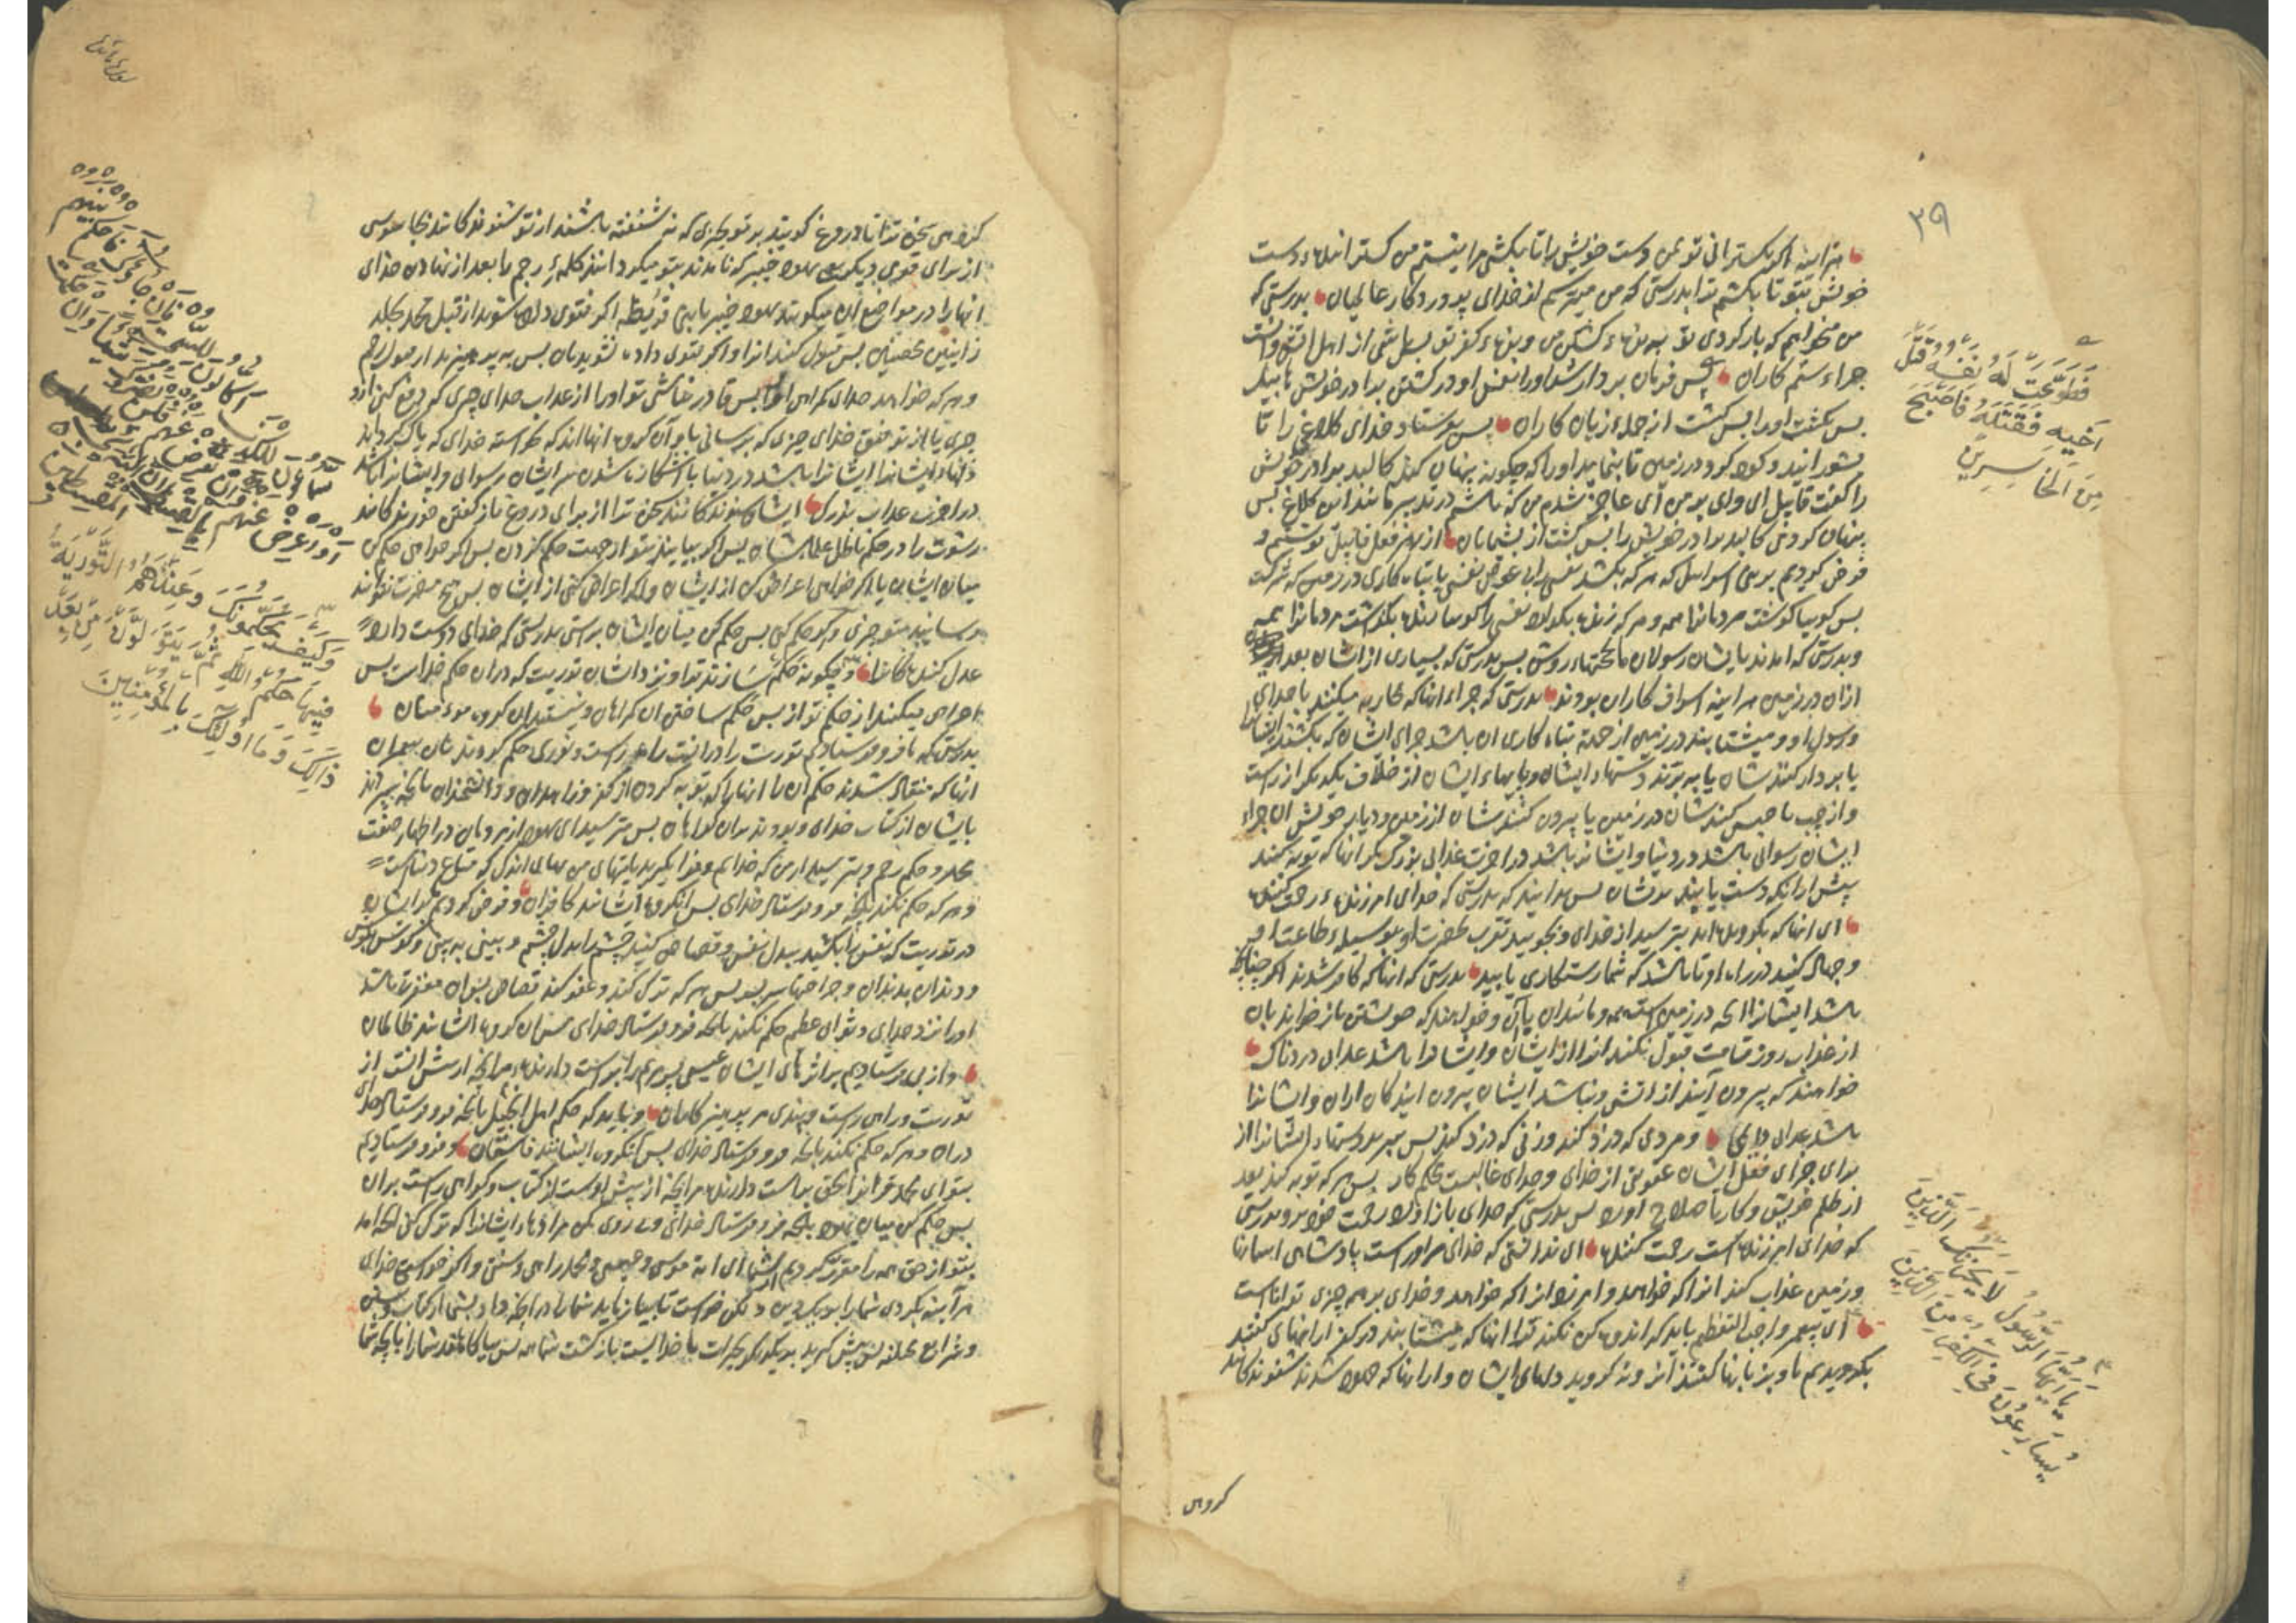 ۳۹
هراینه اکر بکسترانی تو بمن دست خویش را تا بکشی مرا نیستم من کسترانیده دست
خویش بتو تا بکشم ترا بدرستی که من میترسم از خدای پروردکار عالمیان بدرستی که
من میخواهم که بازکردی تو به بزه کشتن من و بزه کفر تو پس باشی از اهل اتش و انست
جزاء ستم کاران پس فرمان بردار شد اورا نفس او در کشتن برادر خویش هابیل
پس بکشت اورا پس کشت از جمله زیان کاران پس بفرستاد خدای کلاغی را تا
بشورانید و کود در زمین تا بنماید اورا که چکونه پنهان کند کالبد برادر خویش
را کفت قابیل ای وای بر من آی عاجز شدم من که باشم در تدبیر مانند این کلاغ پس
پنهان کردمی کالبد برادر خویش را پس کشت از پشیمانان از بهر فعل قابیل نوشتیم و
فرض کردیم بر بنی اسرائیل که هر که بکشد نفسی را بی عوض نفسی یا تباه کاری در زمین که شرکت
پس کوییا کوشت مردمانرا همه و هر که زنده بکرداند نفسی را کوییا زنده بکذاشت مردمانرا همه
و بدرستی که امدند بایشان رسولان ما بحجتهاء روشن پس بدرستی که بسیاری از ایشان بعد از
ازان در زمین هراینه اسراف کاران بودند بدرستی که جزاء انها که محاربه میکنند با خدای
و رسول او و میشتابند در زمین از جهة تباه کاری ان باشد جزای ایشان که بکشند ایشانرا
یا بردار کنند شان یا به برند دستهاء ایشان و پایهاء ایشان از خلاف یکدیکر از راست
و از چپ یا حبس کنند شان در زمین یا بیرون کنند شان از زمین و دیار خویش ان جزاء
ایشان رسوائی باشد در دنیا و ایشانرا باشد در اخرت عذابی بزرک مکر انها که توبه کنند
پیش ازانکه دست یابید برشان پس بدانید که بدرستی که خدای امرزنده و رحمت کننده
ای انها که بکرویده اید بترسید از خدای و بجویید تقرب بحضرت او بوسیله طاعت او
و جهاد کنید در راه او تا باشد که شما رستکاری یابید بدرستی که انها که کافر شدند اکر چنانچه
باشد ایشانرا انچه در زمین است همه و مانند ان با آن و خواهند که خویشتن باز خرند بان
از عذاب روز قیامت قبول نکنند انرا از ایشان و ایشانرا باشد عذابی دردناک
خواهند که بیرون آیند از اتش و نباشند ایشان بیرون ایندکان ازان و ایشانرا
باشد عذابی دایم و مردی که دزد کند و زنی که دزد کند پس ببرید دستهاء ایشانرا از
برای جزای فعل ایشان عقوبتی از خدای و خدای غالبست محکم کار پس هر که توبه کند بعد
از ظلم خویش و کار باصلاح اورد پس بدرستی که خدای باز اورد رحمت خود برو بدرستی
که خدای امرزنده است رحمت کننده ای ندانستی که خدای مراوراست پادشاهی اسمانها
و زمین عذاب کند انرا که خواهد و امرزد انرا که خواهد و خدای بر هر چیزی تواناست
ای پیغمبر واجب التعظیم باید که اندوهکن نکند ترا انها که میشتابند در کفر از انهای کفتند
بکرویدیم ما بزبانها کفتند آنرا و نکروید دلهای ایشان و از انها که جهود شدند شنوندکانند
فَطَوَّعَتْ لَهُ نَفْسُهُ قَتْلَ
اَخِيهِ فَقَتَلَهُ فَاَصْبَحَ
مِنَ الْخَاسِرِينَ
يَا اَيُّهَا الرَّسُولُ لَا يَحْزُنْكَ الَّذِينَ
يُسَارِعُونَ فِي الْكُفْرِ مِنَ الَّذِينَ
کروهی
کروهی سخن ترا تا دروغ کویند بر تو بچیزی که نشنفته باشند از تو شنوندکانند بجاسوسی
از برای قومی دیکر یعنی یهود خیبر که نامدند بتو میکردانند کلمهٔ رجم را بعد از نهادن خدای
انها را در مواضع ان میکویند یهود خیبر با بنی قریظه اکر فتوی داده شوید از قبل محمد بجلد
زانیین محصنین پس قبول کنید انرا و اکر فتوی داده نشوید بان پس به پرهیزید از قبول رجم
و هر که خواهد خدای کمراهی اورا پس قادر نباشی تو اورا از عذاب خدای چیزی که دفع کنی ازو
چیزی یا از توفیق خدای چیزی که برسانی باو آن کروه انها اند که نخواسته خدای که پاک کرداند
دلهاء ایشانرا ایشانرا باشد در دنیا باشکارا شدن سر ایشان رسوائی و ایشانرا باشد
در اخرت عذاب بزرک ایشان شنوندکانند سخن ترا از برای دروغ باز کفتن خورندکانند
رشوت را در حکم باطل علماء ایشان پس اکر بیایند بتو از جهت حکم کردن پس اکر خواهی حکم کن
میان ایشان یا اکر خواهی اعراض کن از ایشان و اکر اعراض کنی از ایشان پس هیچ مضرت نتوانند
رسانید بتو چیزی و اکر حکم کنی پس حکم کن میان ایشان براستی بدرستی که خدای دوست دارد
عدل کنندکانرا و چکونه حکم سازند ترا و نزد ایشان توریت که دران حکم خداست پس
اعراض میکنند از حکم تو از پس حکم ساختن ان کمراهان و نیستند ان کروه مومنان
بدرستی که ما فرو فرستادیم توریت را درانست راه راست و نوری حکم کردند بان پیغمبران
انها که منقاد شدند حکم ان را انها را که توبه کردن از کفر و زاهدان و دانشمندان بانچه سپردند
بایشان از کتاب خدای و بودند بران کواهان پس مترسید ای یهود از مردمان در اظهار صفت
محمد و حکم رجم و بترسید از من که خدایم و فرا مکیرید بایتهای من بهای اندک که متاع دنیاست
و هر که حکم نکند بانچه فرو فرستاد خدای پس انکروه ایشانند کافران و فرض کردیم بر ایشان
در توریت که نفس را بکشید ببدل نفس و قصاص کنید چشم را ببدل چشم و بینی به بینی و کوش بکوش
و دندان بدندان و جراحتها سر بسر پس هر که ترک کند و عفو کند قصاص پس ان مغفرت باشد
اورا نزد خدای و ثوابی عظیم حکم نکند بانچه فرو فرستاد خدای پس ان کروه ایشانند ظالمان
و از پی فرستادیم بر اثرهای ایشان عیسی پسر مریم را براست دارنده مرانچه از پیش انست از
توریت و راهی راست و پندی مر پرهیزکارانرا و بباید که حکم اهل انجیل بانچه فرو فرستاد خدای
دران و هر که حکم نکند بانچه فرو فرستاد خدای پس انکروه ایشانند فاسقان و فرو فرستادیم
بتو ای محمد قرانرا بحق براست دارنده مرانچه از پیش اوست از کتاب و کواهی راست بران
پس حکم کن میان یهود بانچه فرو فرستاد خدای و پی روی مکن مرادهاء ایشانرا که ترک کنی انچه امد
بتو از حق همه را مقرر کردیم از شما ای امة موسی و عیسی و محمد راهی و سنتی و اکر خواستی خدای
هرآینه بکردی شما را بر یکدین و لکن خواست تا بیازماید شما را درانچه داد بشما از کتاب و سنن
و شرایع مختلفه پس پیش کیرید بر یکدیکر بخیرات با خدایست بازکشت شما همه پس بیاکاهاند شما را بانچه شما
وَكَيْفَ يُحَكِّمُونَكَ وَعِنْدَهُمُ التَّوْرِيَةُ
فِيهَا حُكْمُ اللّٰهِ ثُمَّ يَتَوَلَّوْنَ مِنْ بَعْدِ
ذٰلِكَ وَمَا اُولٰئِكَ بِالْمُؤْمِنِينَ